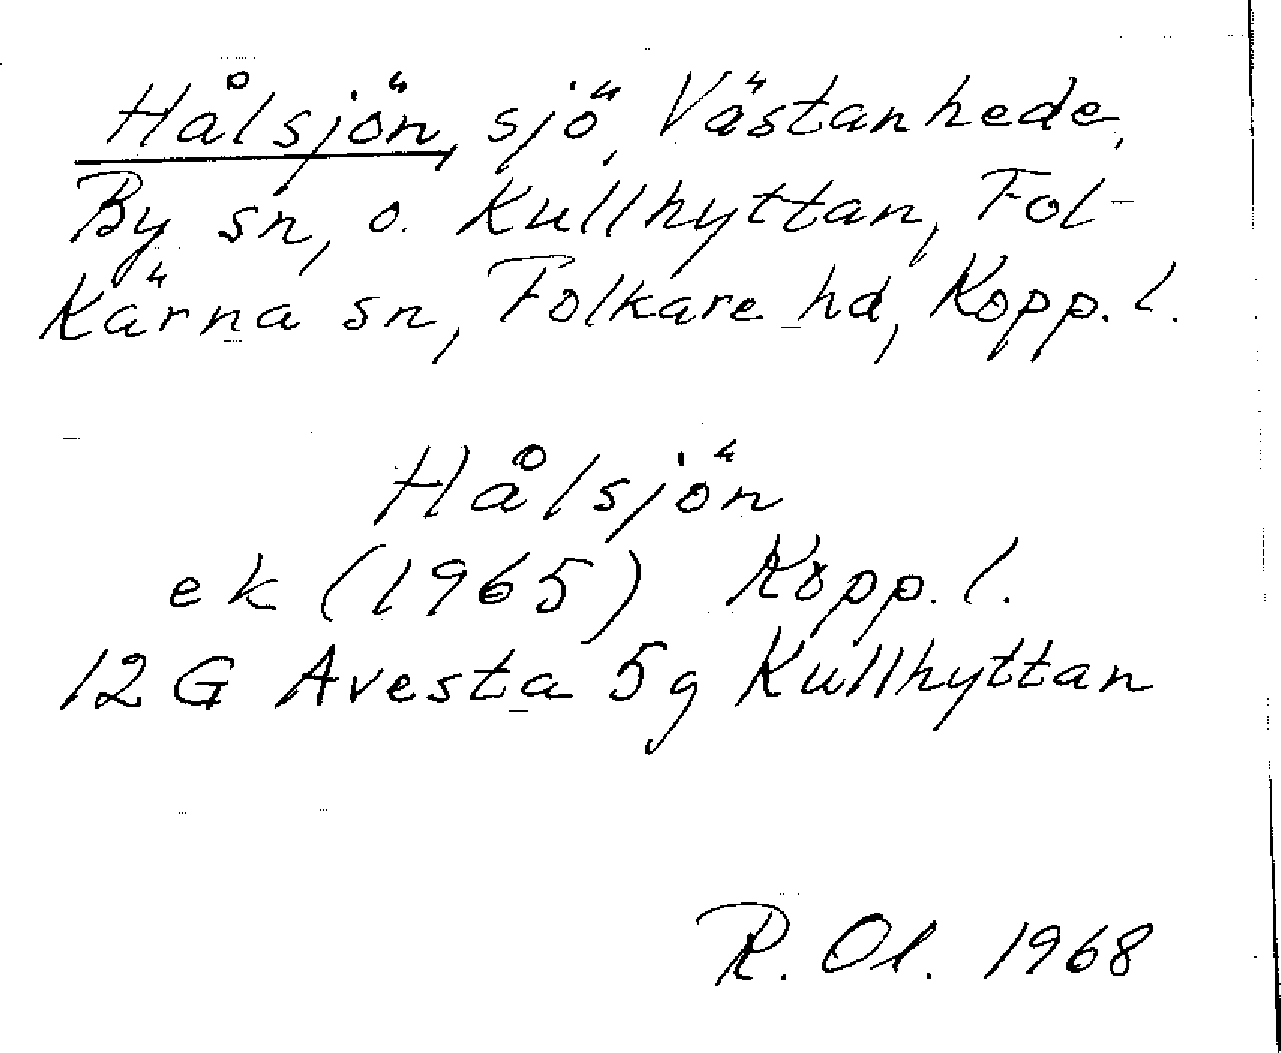 Hålsjön, sjö, Västanhede,
By sn, o. Kullhyttan, Fol-
Kärna sn, Folkare hd, Kopp. l.
Hålsjön
ek (1965) Kopp. l.
12 G Avesta 5g Kullhyttan
R. Ol. 1968